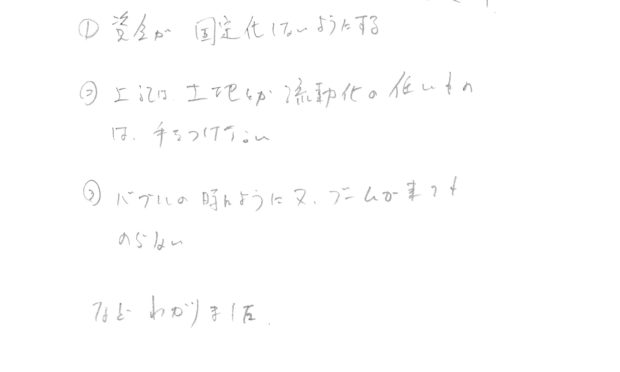 ① 資金が 固定化しないようにする
② 上記は、土地とか流動化の低いもの
は、手をつけない
③ バブルの時のように又、ブームが来ても
のらない
など わかりました。